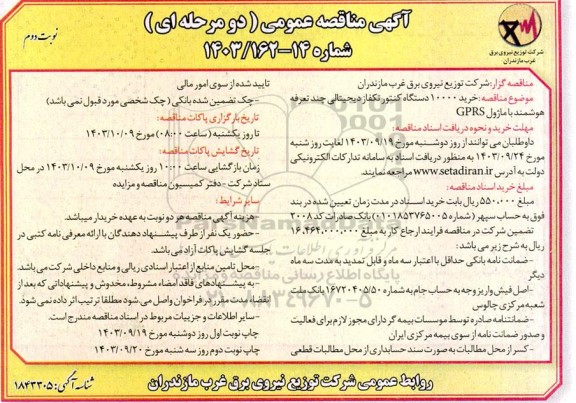 آگهی مناقصه عمومی ( دو مرحله ای )
شماره ۱۴-۱۴۰۳/۱۶۲
نوبت دوم
شرکت توزیع نیروی برق
غرب مازندران
مناقصه گزار: شرکت توزیع نیروی برق غرب مازندران
موضوع مناقصه: خرید ۱۰۰۰۰ دستگاه کنتور تکفاز دیجیتالی چند تعرفه
هوشمند با ماژول GPRS
مهلت خرید و نحوه دریافت اسناد مناقصه:
داوطلبان می توانند از روز دوشنبه مورخ ۱۴۰۳/۰۹/۱۹ لغایت روز شنبه
مورخ ۱۴۰۳/۰۹/۲۴ به منظور دریافت اسناد به سامانه تدارکات الکترونیکی
دولت به آدرس www.setadiran.ir مراجعه نمایند.
مبلغ خرید اسناد مناقصه:
مبلغ ۵۵۰،۰۰۰ ریال بابت خرید اسناد در مدت زمان تعیین شده در بند
فوق به حساب سپهر (شماره ۰۱۰۱۸۵۳۷۶۵۰۰۵) بانک صادرات کد ۲۰۰۸
تضمین شرکت در مناقصه فرایند ارجاع کار به مبلغ ۱۶،۴۶۴،۰۰۰،۰۰۰
ریال به شرح زیر می باشد:
-ضمانت نامه بانکی حداقل با اعتبار سه ماه و قابل تمدید به مدت سه ماه
دیگر
-اصل فیش واریز وجه به حساب جام به شماره ۱۶۷۲۰۴۰۵/۵۰ بانک ملت
شعبه مرکزی چالوس
-ضمانتنامه صادره توسط موسسات بیمه گر دارای مجوز لازم برای فعالیت
و صدور ضمانت نامه از سوی بیمه مرکزی ایران
-کسر از محل مطالبات به صورت سند حسابداری از محل مطالبات قطعی
تایید شده از سوی امور مالی
-چک تضمین شده بانکی (چک شخصی مورد قبول نمی باشد)
تاریخ بارگزاری پاکات مناقصه:
تا روز یکشنبه (ساعت ۰۸:۰۰) مورخ ۱۴۰۳/۱۰/۰۹
تاریخ گشایش پاکات مناقصه:
زمان بازگشایی ساعت ۱۰:۰۰ روز یکشنبه مورخ ۱۴۰۳/۱۰/۰۹ در محل
ستاد شرکت - دفتر کمیسیون مناقصه و مزایده
سایر شرایط:
-هزینه آگهی مناقصه هر دو نوبت به عهده خریدار میباشد.
-حضور یک نفر از طرف پیشنهاد دهندگان با ارائه معرفی نامه کتبی در
جلسه گشایش پاکات آزاد می باشد.
-محل تامین منابع از اعتبار اسنادی ریالی و منابع داخلی شرکت می باشد.
-به پیشنهادهای فاقد امضاء مشروط، مخدوش و پیشنهاداتی که بعد از
انقضاء مدت مقرر در فراخوان واصل می شود مطلقا ترتیب اثر داده نمی شود.
-سایر اطلاعات و جزییات مربوط در اسناد مناقصه مندرج است.
چاپ نوبت اول روز دوشنبه مورخ ۱۴۰۳/۰۹/۱۹
چاپ نوبت دوم روز سه شنبه مورخ ۱۴۰۳/۰۹/۲۰
روابط عمومی شرکت توزیع نیروی برق غرب مازندران
شناسه آگهی: ۱۸۴۳۳۰۵